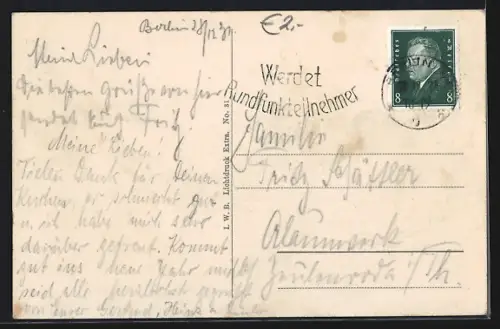 Berlin 28/12 31.
€ 2.-
Meine Lieben
Die besten Grüße von hier
sendet Euch Fritz
Meine Lieben!
Vielen Dank für deinen
Kuchen, er schmeckt gut
u. ich habe mich sehr
darüber gefreut. Kommt
gut ins neue Jahr und
seid alle herzlichst gegrüßt
von Eurer Gertrud, Heinz
I. W. B. Lichtdruck Extra. No. 31
Werdet
Rundfunkteilnehmer
DEUTSCHES REICH
8 8
Familie
Fritz Schäßler
Alaunwerk
b/ Zeulenroda i/Th.